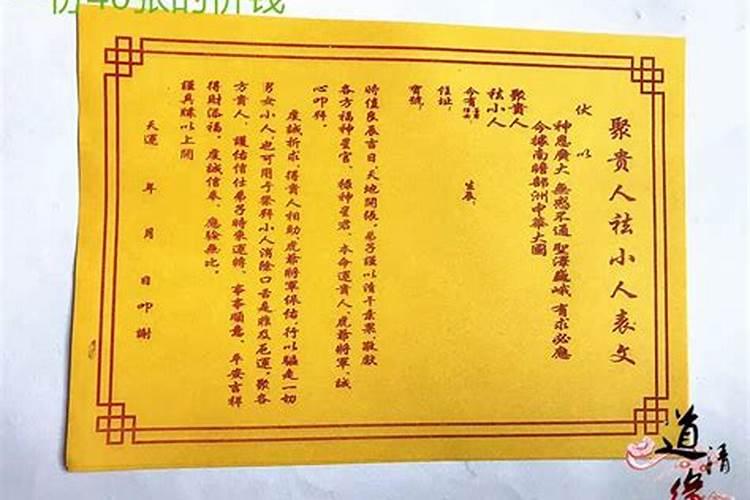 份40张的价钱
聚貴人祛小人表文
伏以
神恩廣大 無感不通 聖澤巍峨 有求必應
今據南瞻部洲中華大國
聚貴人
祛小人
今有
生辰
住址
寶號
時值良辰吉日，天地開張，弟子謹以清干素菓 敬獻
各方福神星官，祿神星君，本命運貴人，虎爺將軍，誠
心叩拜。
虔誠祈求，得貴人相助虎爺將軍保佑 行以驅走一切
男女小人，也可用于祭拜小人消除口舌是非及厄運，聚各
方貴人，護佑信仕弟子時來運轉，事事順意，平安吉祥
得財添福，虔誠信奉，應驗無比。
謹具牒以上聞
天運 年 月 日叩謝
道清緣